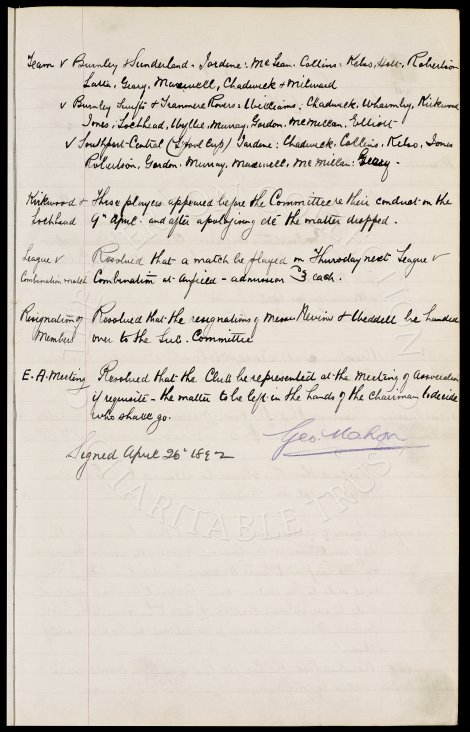 Team v Burnley & Sunderland - Jardine: McLean. Collins: Kelso, Holt, Robertson
Latta, Geary, Maxwell, Chadwick & Milward
v Burnley Swifts & Tranmere Rovers: Williams; Chadwick, Wharmby, Kirkwood
Jones, Lochhead, Wyllie, Murray, Gordon, McMillan, Elliott
v Southport Central (L'pool Cup) Jardine: Chadwick, Collins, Kelso, Jones
Robertson, Gordon. Murray, Maxwell, McMillan: Geary.
Kirkwood & These players appeared before the Committee re their conduct on the
Lochhead 9th April. and after apologising &c the matter dropped.
League v Resolved that a match be played on Thursday next League v
Combination match Combination at Anfield - admission 3d each.
Resignation of Resolved that the resignations of Messrs Nevin & Weddell be handed
Members over to the Sub. Committee
E.A. Meeting Resolved that the Club be represented at the Meeting of Association
if requisite - the matter to be left in the hands of the chairman to decide
who shall go.
Geo. Mahon
Signed April 26th 1892
CHARITABLE TRUST